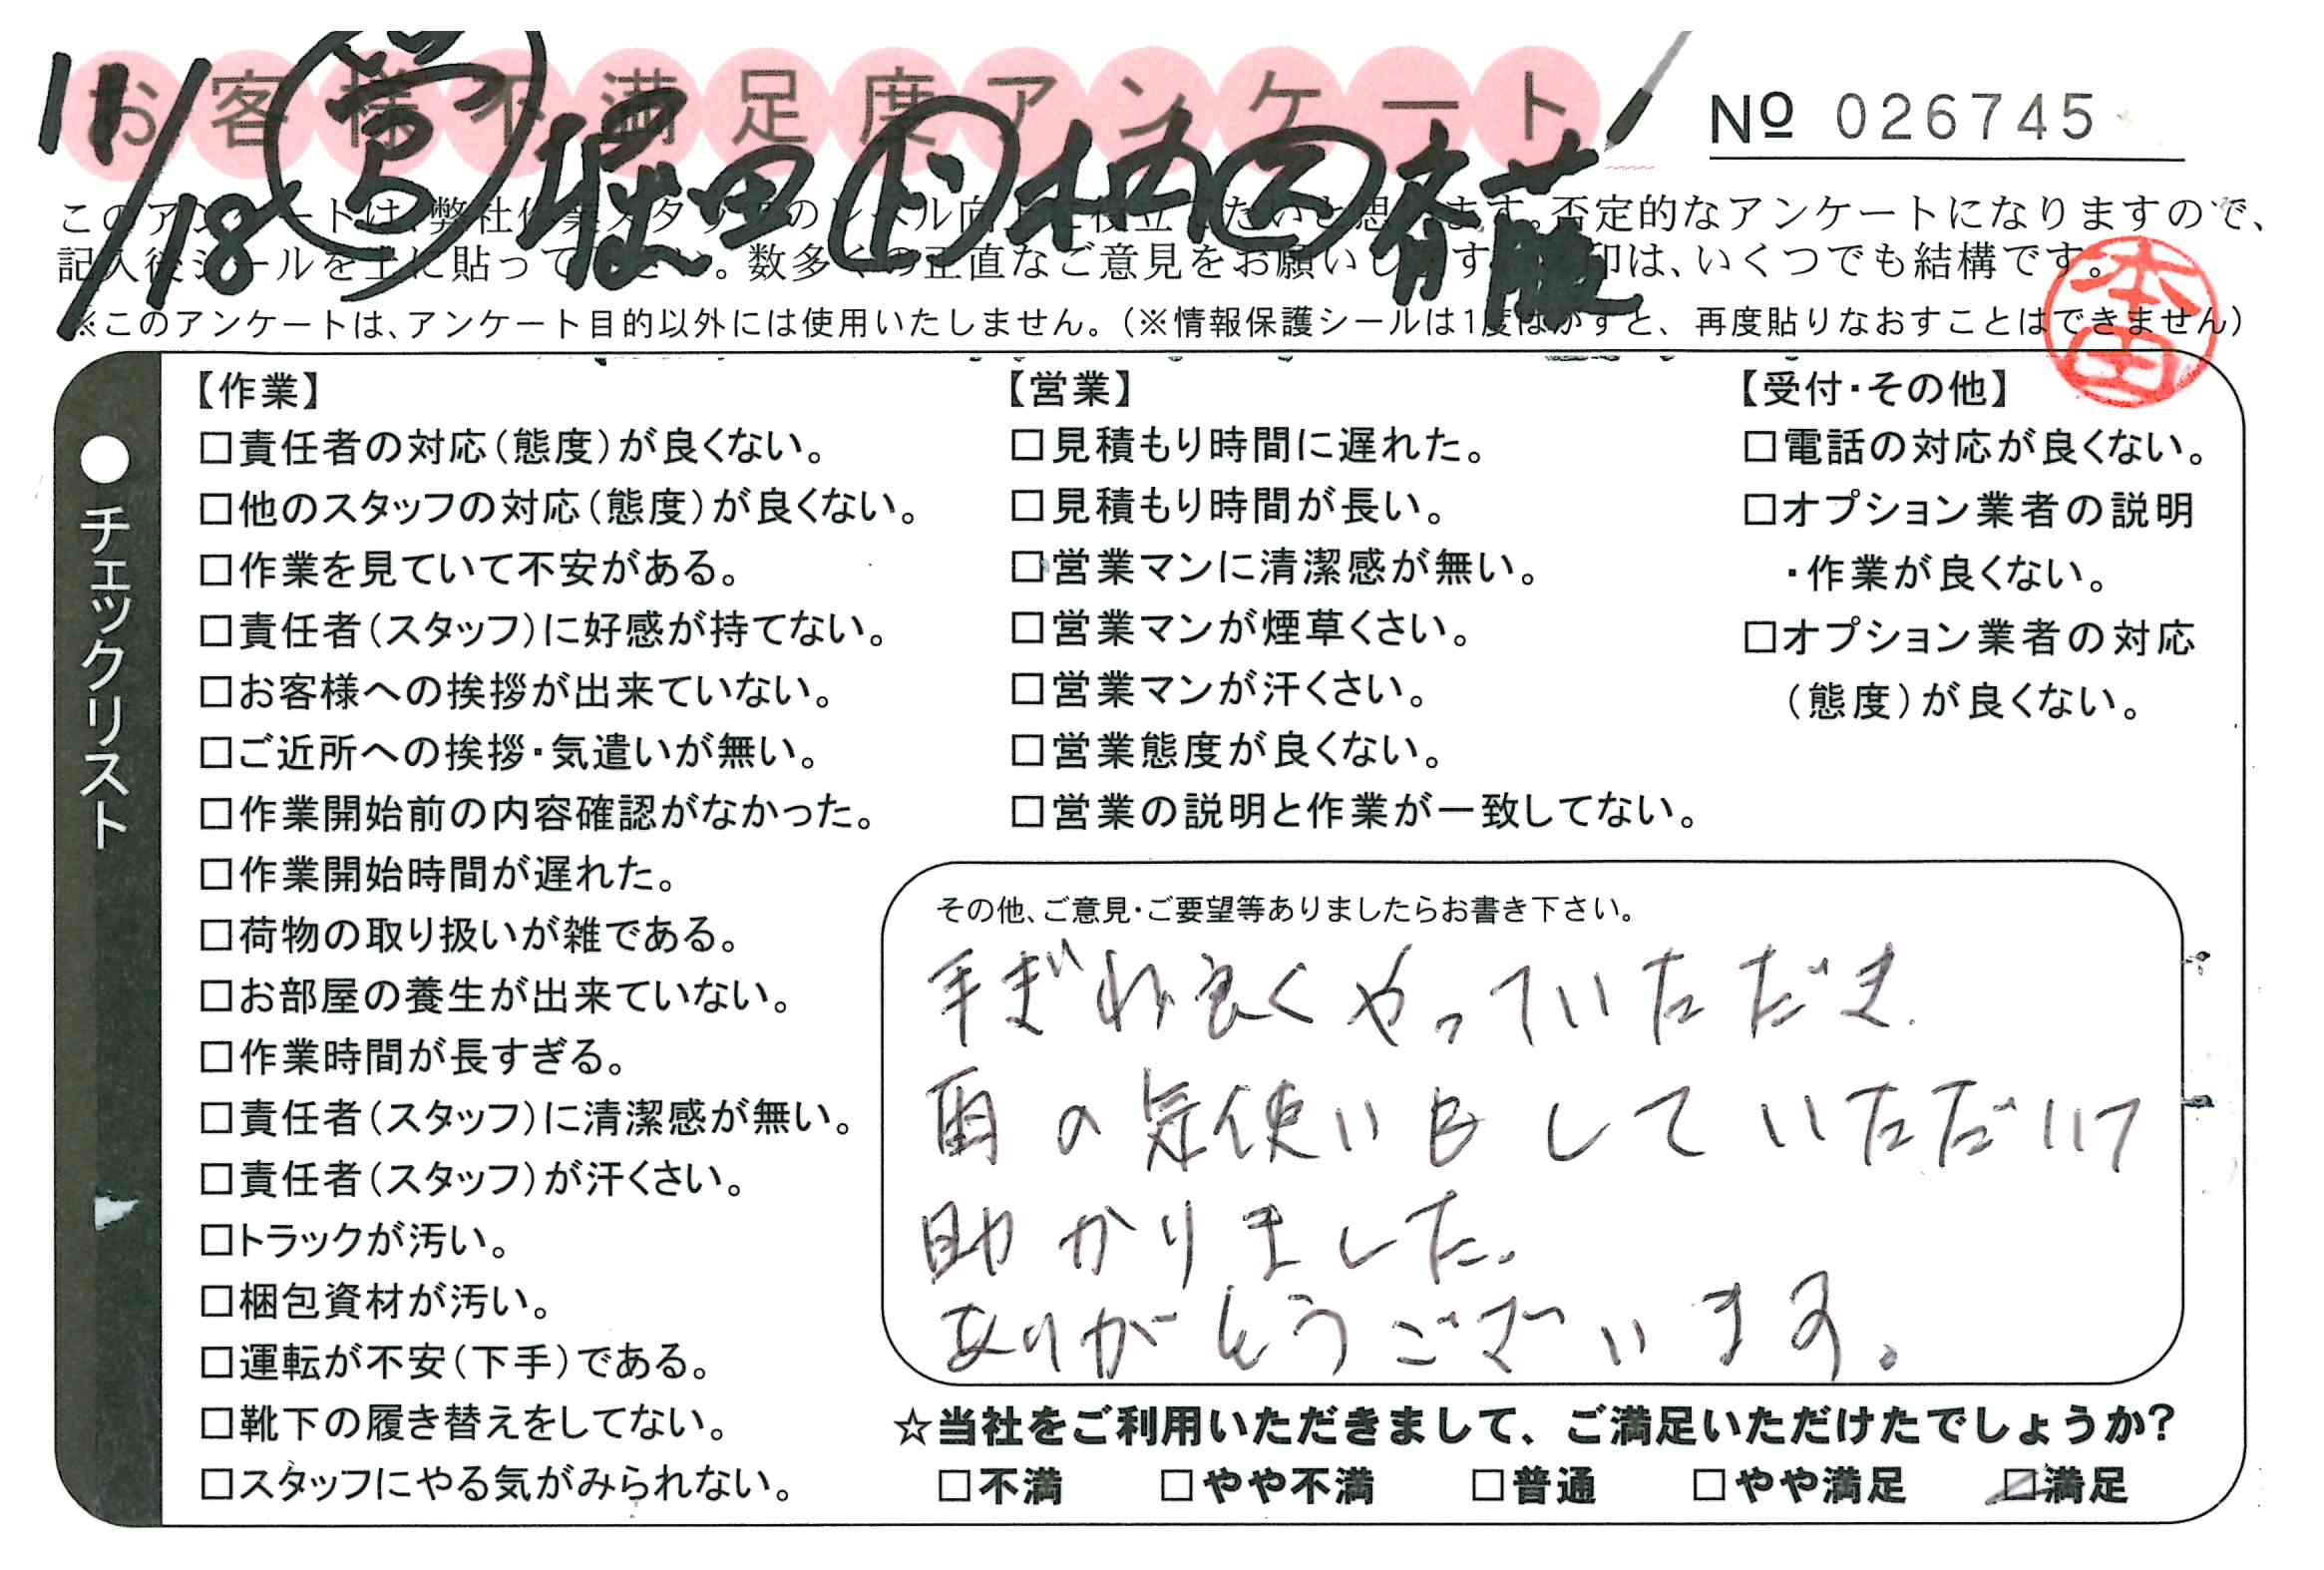 お客様不満足度アンケート
№ 026745
11/18
堀田
このアンケートは、弊社作業スタッフのレベル向上に役立てたいと思います。否定的なアンケートになりますので、
記入後シールを上に貼って下さい。数多くの正直なご意見をお願いします。印は、いくつでも結構です。
※このアンケートは、アンケート目的以外には使用いたしません。（※情報保護シールは1度はがすと、再度貼りなおすことはできません）
本田
●チェックリスト
【作業】
□責任者の対応（態度）が良くない。
□他のスタッフの対応（態度）が良くない。
□作業を見ていて不安がある。
□責任者（スタッフ）に好感が持てない。
□お客様への挨拶が出来ていない。
□ご近所への挨拶・気遣いが無い。
□作業開始前の内容確認がなかった。
□作業開始時間が遅れた。
□荷物の取り扱いが雑である。
□お部屋の養生が出来ていない。
□作業時間が長すぎる。
□責任者（スタッフ）に清潔感が無い。
□責任者（スタッフ）が汗くさい。
□トラックが汚い。
□梱包資材が汚い。
□運転が不安（下手）である。
□靴下の履き替えをしてない。
□スタッフにやる気がみられない。
【営業】
□見積もり時間に遅れた。
□見積もり時間が長い。
□営業マンに清潔感が無い。
□営業マンが煙草くさい。
□営業マンが汗くさい。
□営業態度が良くない。
□営業の説明と作業が一致してない。
【受付・その他】
□電話の対応が良くない。
□オプション業者の説明
・作業が良くない。
□オプション業者の対応
（態度）が良くない。
その他、ご意見・ご要望等ありましたらお書き下さい。
手ぎわ良くやっていただき
雨の気使いもしていただいて
助かりました。
ありがとうございます。
☆当社をご利用いただきまして、ご満足いただけたでしょうか?
□不満 □やや不満 □普通 □やや満足 ☑満足